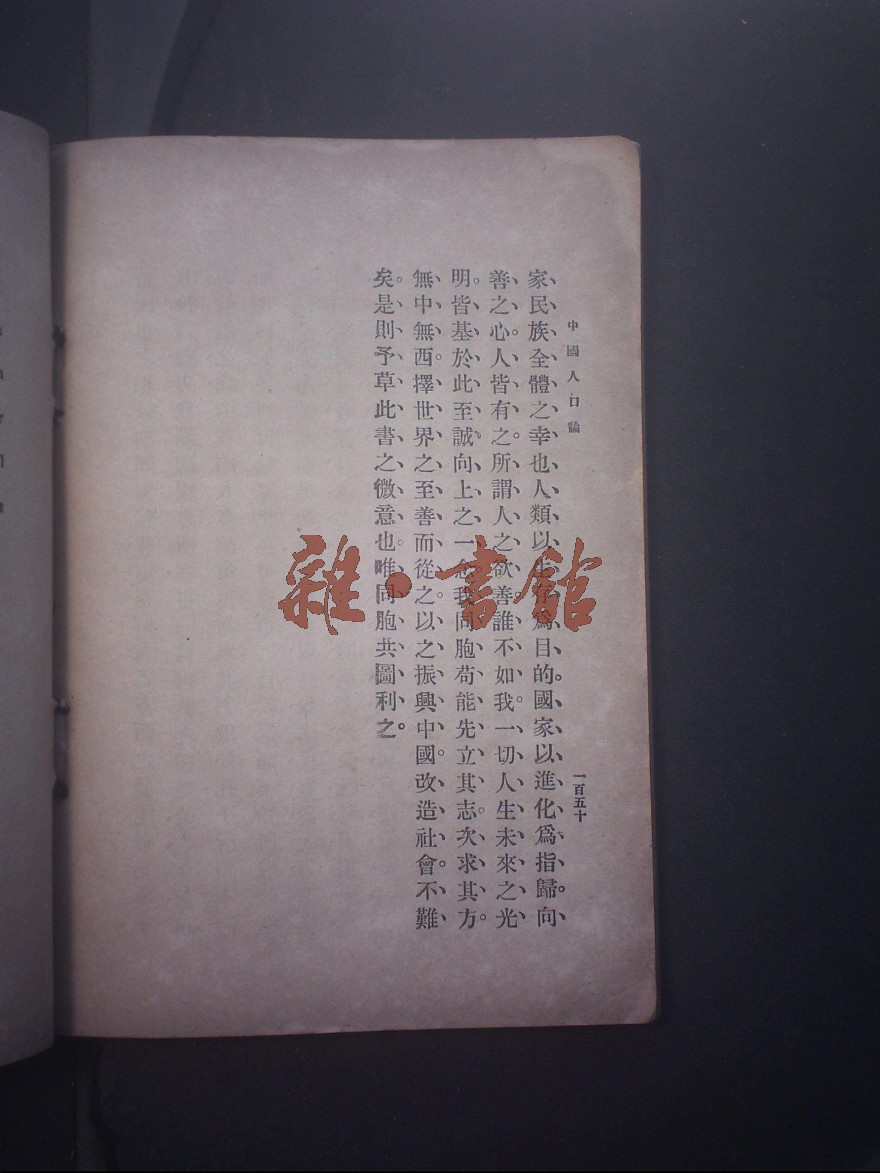 中國人口論
一百五十
家、民、族、全、體、之、幸、也、人、類、以、生、存、爲、目、的。國、家、以、進、化、爲、指、歸。向、
善、之、心。人、皆、有、之。所、謂、人、之、欲、善、誰、不、如、我。一、切、人、生、未、來、之、光、
明。皆、基、於、此、至、誠、向、上、之、一、念。我、同、胞、苟、能、先、立、其、志。次、求、其、方。
無、中、無、西。擇、世、界、之、至、善、而、從、之、以、之、振、興、中、國。改、造、社、會。不、難、
矣。是、則、予、草、此、書、之、微、意、也。唯、同、胞、共、圖、利、之。
雜·書館